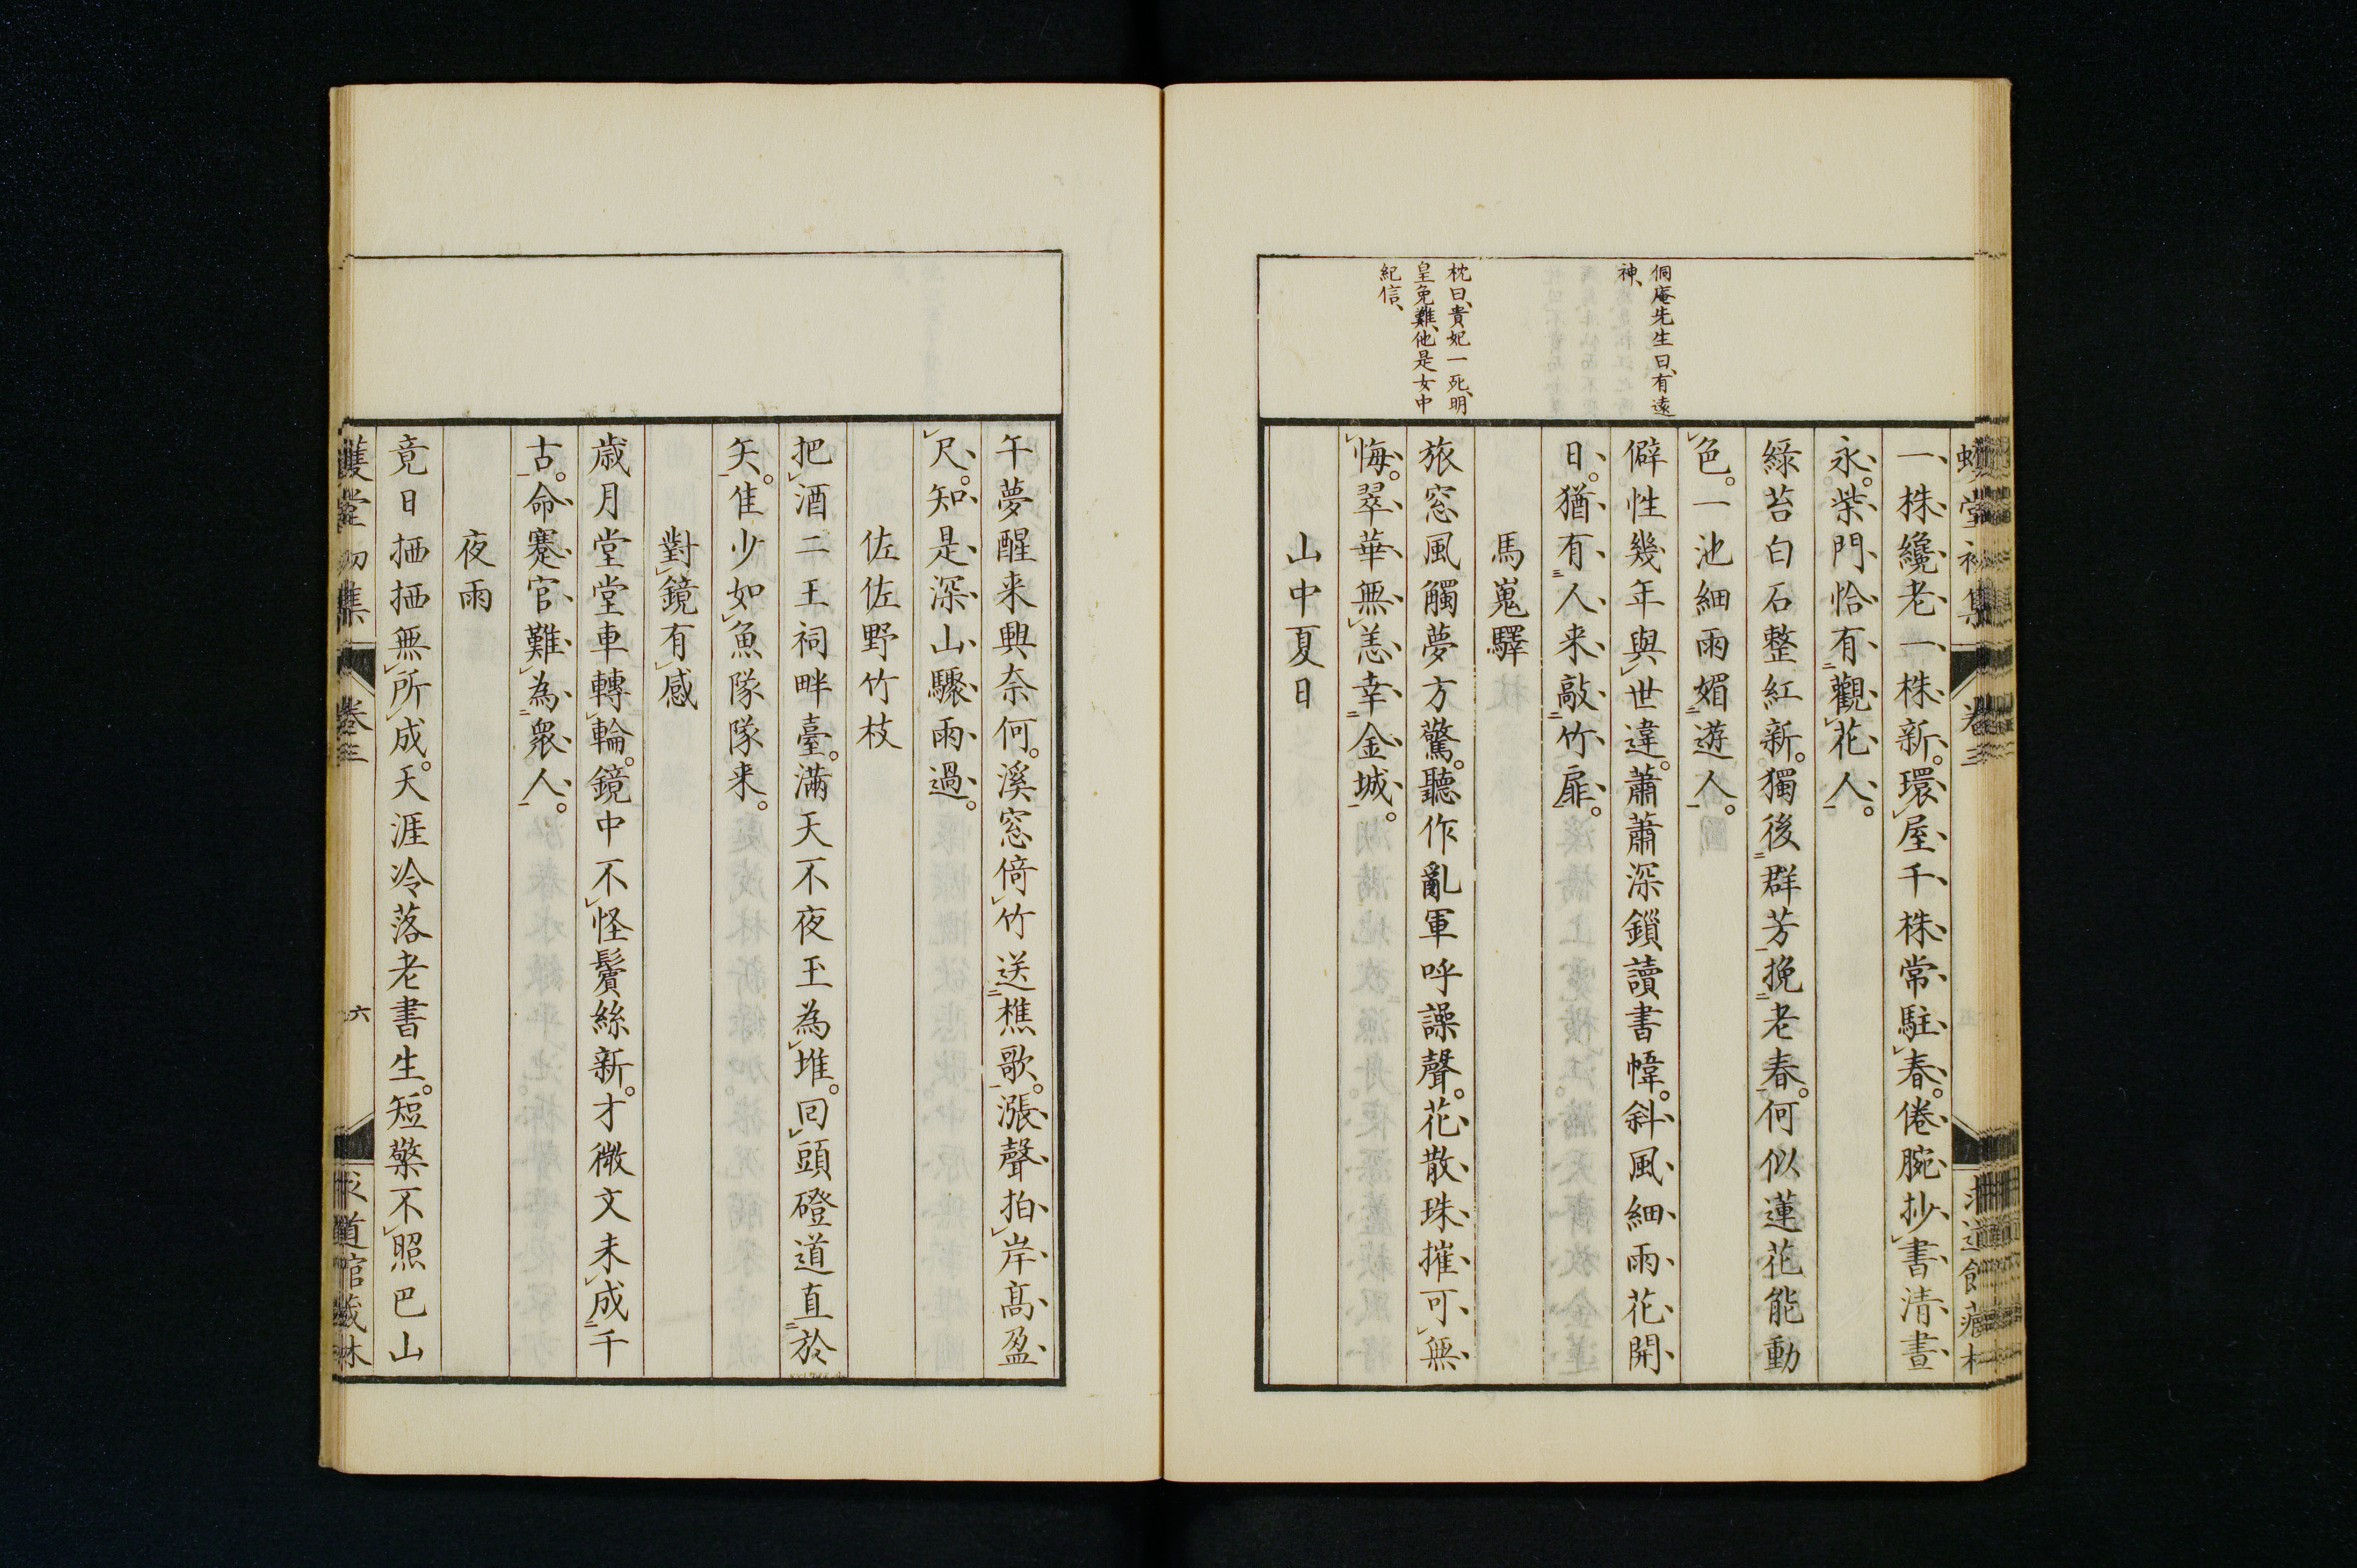 侗庵先生曰、有遠
神、
枕曰、貴妃一死、明
皇免難、他是女中
紀信、
一株纔老一株新。環屋千株常駐春。倦腕抄書清晝
永。柴門恰有觀花人。
綠苔白石整紅新。獨後群芳挽老春。何似蓮花能動
色。一池細雨媚遊人。
僻性幾年與世違。蕭蕭深鎖讀書幃。斜風細雨花開
日。猶有人来敲竹扉。
馬嵬驛
旅窓風觸夢方驚。聽作亂軍呼譟聲。花散珠摧可無
悔。翠華無恙幸金城。
山中夏日
午夢醒来興奈何。溪窓倚竹送樵歌。漲聲拍岸高盈
尺。知是深山驟雨過。
佐佐野竹枝
把酒二王祠畔臺。滿天不夜玉為堆。回頭磴道直於
矢。隹少如魚隊隊来。
對鏡有感
歲月堂堂車轉輪。鏡中不怪鬢絲新。才微文未成千
古。命蹇官難為衆人。
夜雨
竟日栖栖無所成。天涯冷落老書生。短檠不照巴山
卷三
六